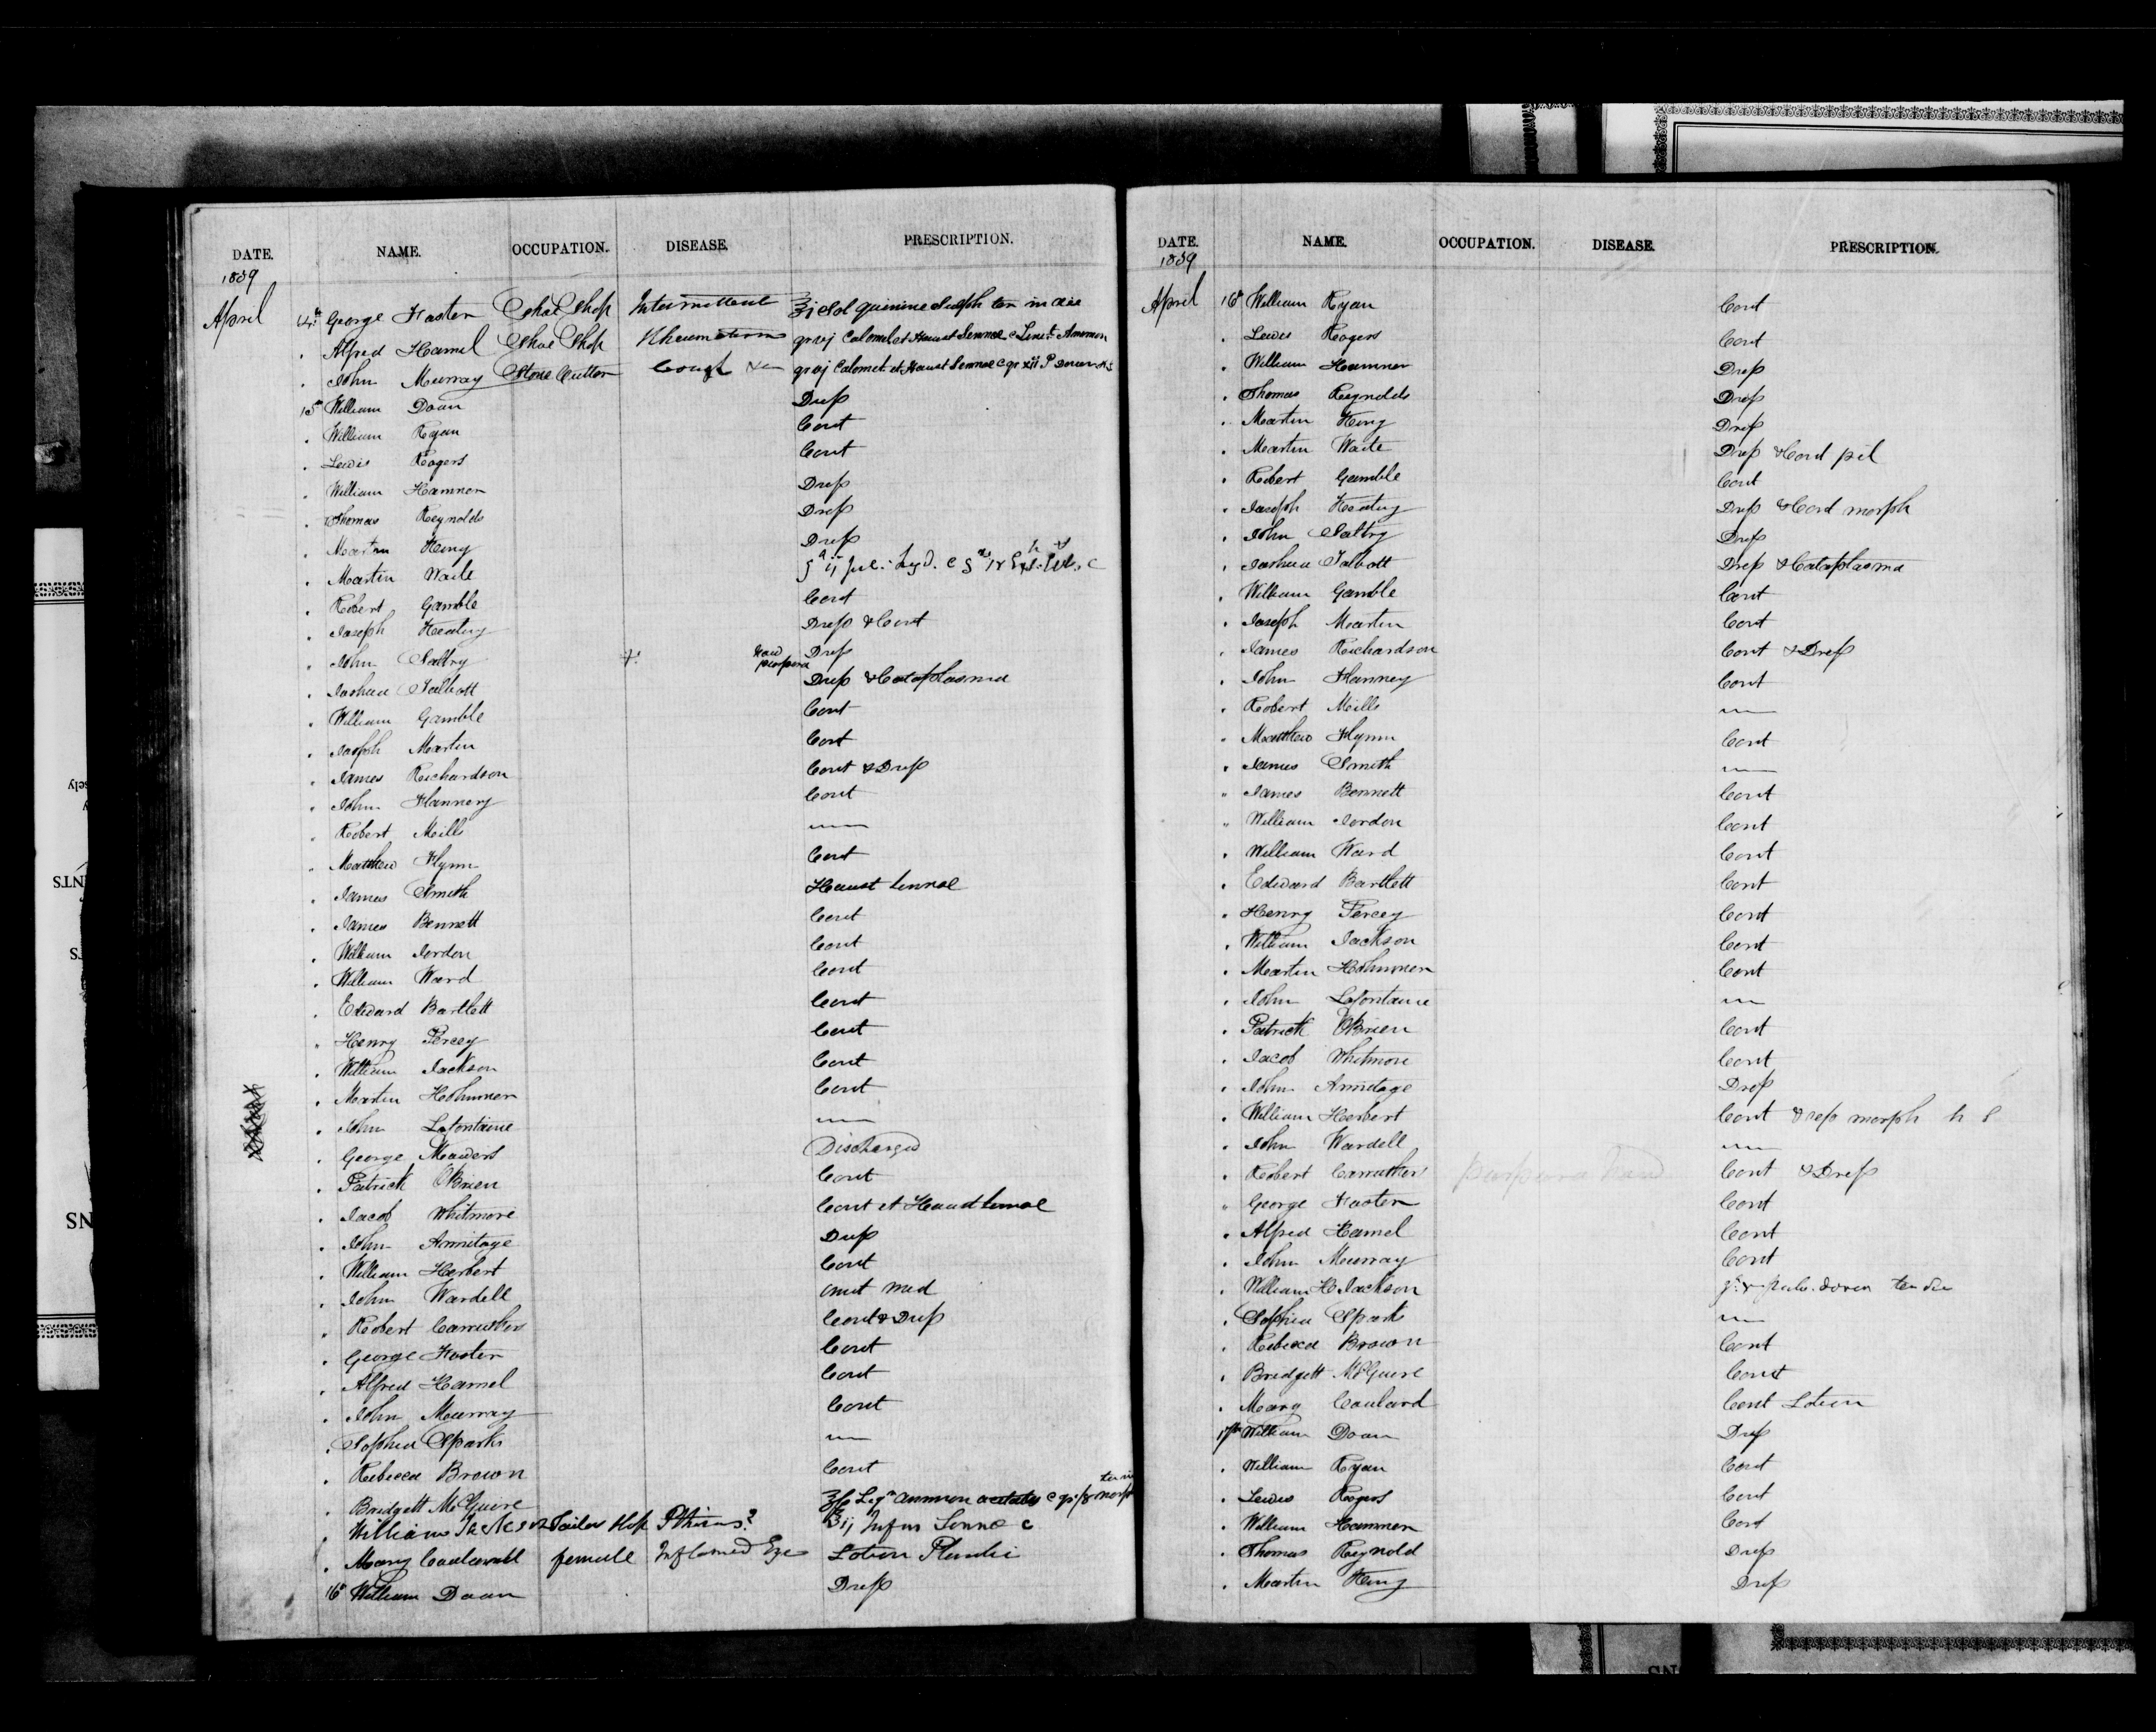 DATE. NAME. OCCUPATION. DISEASE. PRESCRIPTION.
1839
April 14th George Foster Shoe Shop Intermittent ʒj Sol Quinine Sulph ter in die
" Alfred Hamel Shoe Shop Rheumatism gr vj Calomel et Haust Sennae c Linit Ammon
" John Murray Stone Cutter Cough gr vj Calomel et Haust Sennae c gr xii P Dover
15th William Doan Dress
" William Ryan Cont
" Lewis Rogers Cont
" William Hamner Dress
" Thomas Reynolds Dress
" Martin King Dress
" Martin Waite
" Robert Gamble Cont
" Joseph Keating Dress & Cont
" John Saltry Dress
" Joshua Talbott Dress & Cataplasma
" William Gamble Cont
" Joseph Martin Cont
" James Richardson Cont & Dress
" John Flannery Cont
" Robert Mills
" Matthew Flynn Cont
" James Smith Haust Sennae
" James Bennett Cont
" William Jordon Cont
" William Ward Cont
" Edward Bartlett Cont
" Henry Percey Cont
" William Jackson Cont
" Martin Hohumer Cont
" John Lafontaine
" George Meawers Discharged
" Patrick OBrien Cont
" Jacob Whitmore Cont et Haust Sennae
" John Armitage Dress
" William Herbert Cont
" John Wardell omit med
" Robert Carruthers Cont & Dress
" George Foster Cont
" Alfred Hamel Cont
" John Murray Cont
" Sophia Sparks
" Rebecca Brown Cont
" Bridgett McGuire Liqr Ammon acetatis
" William Jackson Tailor Shop Pthisis? ʒij Infus Senna c
" Mary female Inflamed Eye Lotion Plumbi
16th William Doan Dress
DATE. NAME. OCCUPATION. DISEASE. PRESCRIPTION.
1839
April 16th William Ryan Cont
" Lewis Rogers Cont
" William Hamner Dress
" Thomas Reynolds Dress
" Martin King Dress
" Martin Waite Dress & Cont pil
" Robert Gamble Cont
" Joseph Keating Dress & Cont morph
" John Saltry Dress
" Joshua Talbott Dress & Cataplasma
" William Gamble Cont
" Joseph Martin Cont
" James Richardson Cont & Dress
" John Flannery Cont
" Robert Mills
" Matthew Flynn Cont
" James Smith
" James Bennett Cont
" William Jordon Cont
" William Ward Cont
" Edward Bartlett Cont
" Henry Percey Cont
" William Jackson Cont
" Martin Hohumer Cont
" John Lafontaine
" Patrick OBrien Cont
" Jacob Whitmore Cont
" John Armitage Dress
" William Herbert Cont & rep morph h s
" John Wardell
" Robert Carruthers Cont & Dress
" George Foster Cont
" Alfred Hamel Cont
" John Murray Cont
" William H Jackson
" Sophia Sparks
" Rebecca Brown Cont
" Bridgett McGuire Cont
" Mary Cont Lotion
17th William Doan Dress
" William Ryan Cont
" Lewis Rogers Cont
" William Hamner Cont
" Thomas Reynold Dress
" Martin King Dress